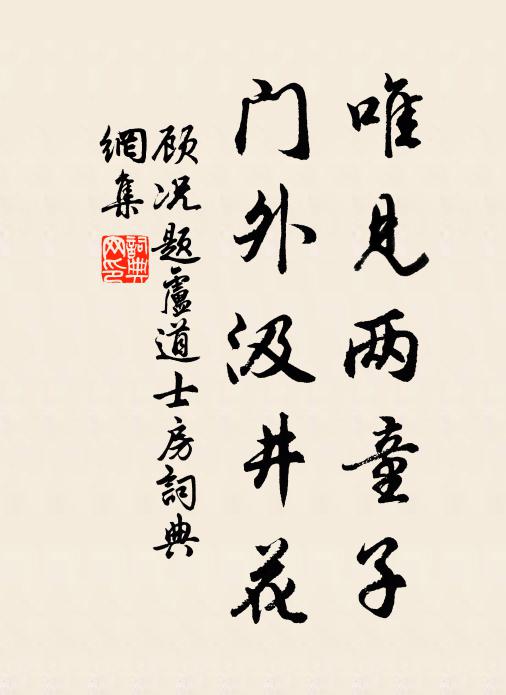 唯见两童子
门外汲井花
顾况题卢道士房词典
網集
詞典網印